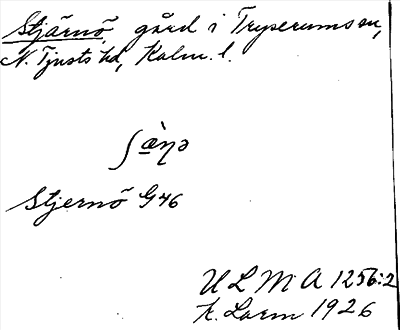 Stjärnö, gård i Tryserums sn,
N. Tjusts hd, Kalm. l.
ʃæ̀ṇə
Stjernö G46
ULMA 1256:2
K. Lorm 1926